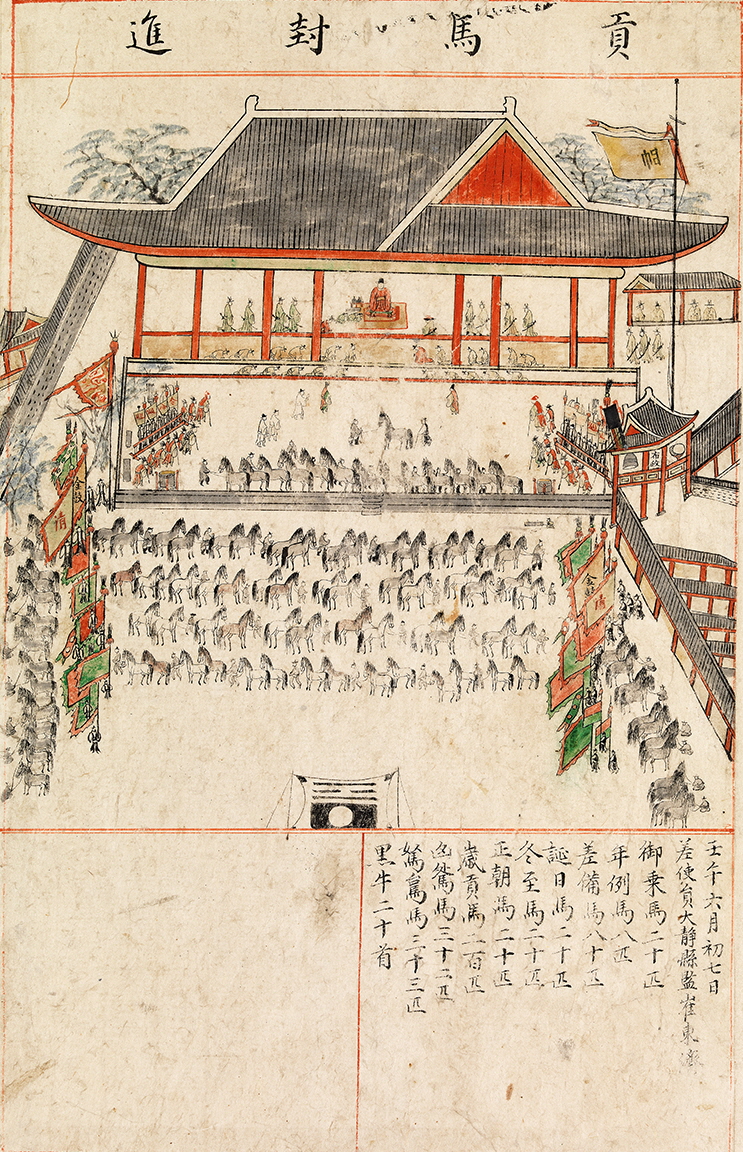 貢馬封進
帥
金鼓
金鼓
壬午六月初七日
差使員大靜縣監崔東濟
御乘馬二十匹
年例馬八匹
差備馬八十匹
誕日馬二十匹
冬至馬二十匹
正朝馬二十匹
歲貢馬二百匹
凶咎馬三十二匹
駑駘馬三十三匹
黑牛二十首